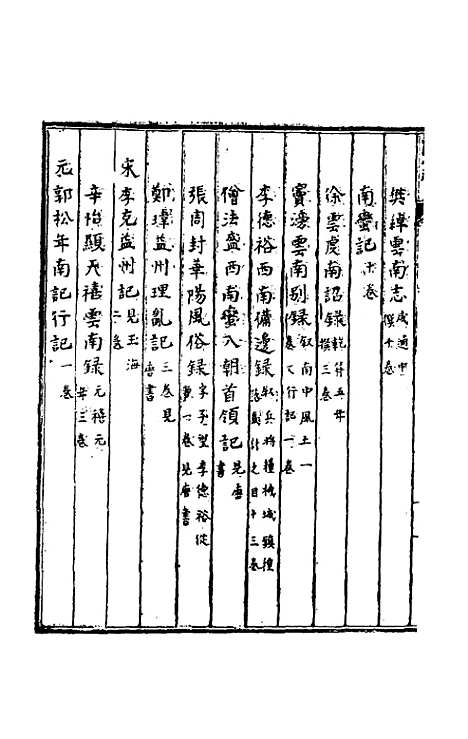 樊綽雲南志咸通中撰十卷
南蠻記十卷
徐雲虔南詔錄乾符五年撰三卷
竇滂雲南别錄敘南中風土一卷又行記一卷
李德裕西南備邊錄敘兵將糧械城鎮種落之目十三卷
僧法盛西南蠻入朝首領記見唐書
張周封華陽風俗錄字子望李德裕從一卷見唐書
鄭暐益州理亂記三卷見唐書
宋李克益州記見玉海二卷
辛怡顯天禧雲南錄天禧元年三卷
元郭松年南記行記一卷